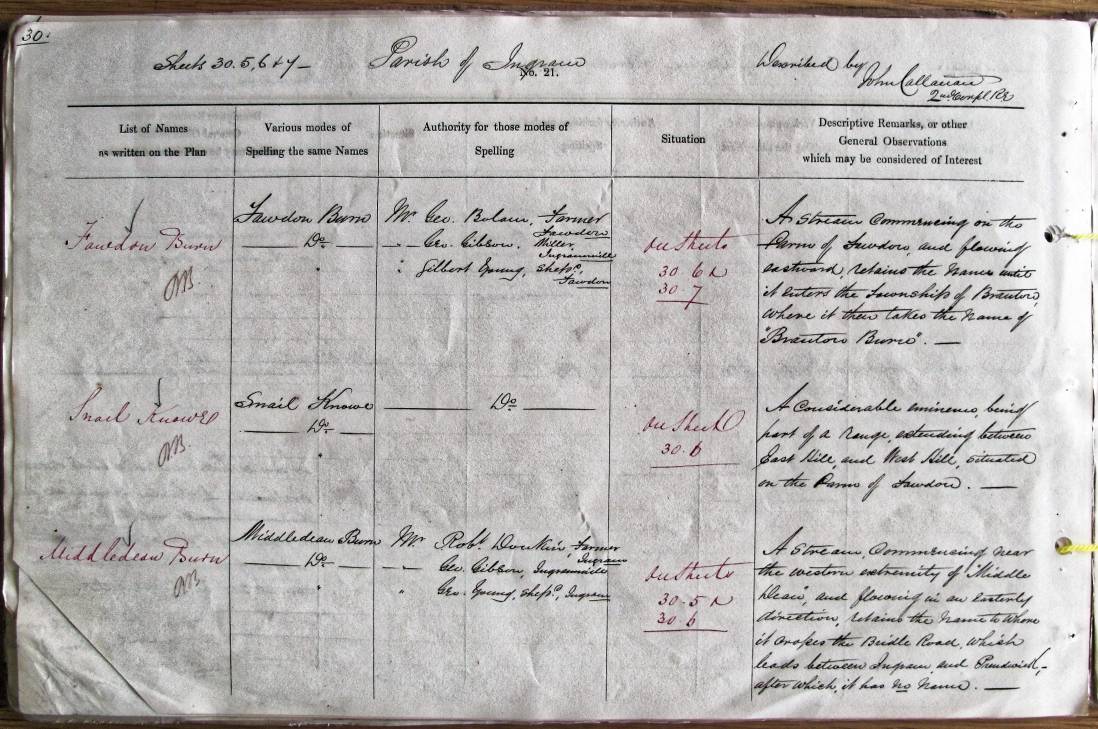 30.
Sheets 30.5, 6 & 7 — Parish of Ingram Described by
No. 21. John Callanan
2nd Corpl RE
List of Names
as written on the Plan
Various modes of
Spelling the same Names
Authority for those modes of
Spelling
Situation
Descriptive Remarks, or other
General Observations
which may be considered of Interest
Fawdon Burn
Fawdon Burn
Do.
"
Mr Geo. Bolam, Farmer
Fawdon
" Geo. Gibson, Miller,
Ingrammill
" Gilbert Young, Shepd.,
Fawdon
on Sheets
30.6 &
30.7
A Stream commencing on the
Farm of Fawdon, and flowing
eastward, retains the Name until
it enters the Township of Branton,
where it then takes the Name of
"Branton Burn". —
Snail Knowe
Snail Knowe
Do.
"
Do.
on Sheet
30.6
A Considerable eminence, being
part of a Range, extending between
East Hill, and West Hill, situated
on the Farm of Fawdon. —
Middledean Burn
Middledean Burn
Do.
"
Mr Robt. Donkin, Farmer
Ingram
" Geo. Gibson, Ingrammill
" Geo. Young, Shepd., Ingram
on Sheets
30.5 &
30.6
A Stream, Commencing near
the western extremity of Middle
Dean, and flowing in an easterly
direction, retains the Name to where
it crosses the Bridle Road, which
leads between Ingram and Prendwick,
after which, it has no Name. —